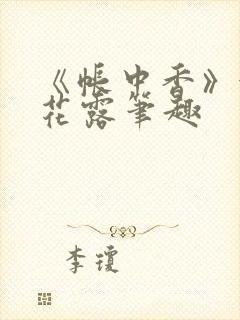 《帐中香》
花露笔趣
李琼